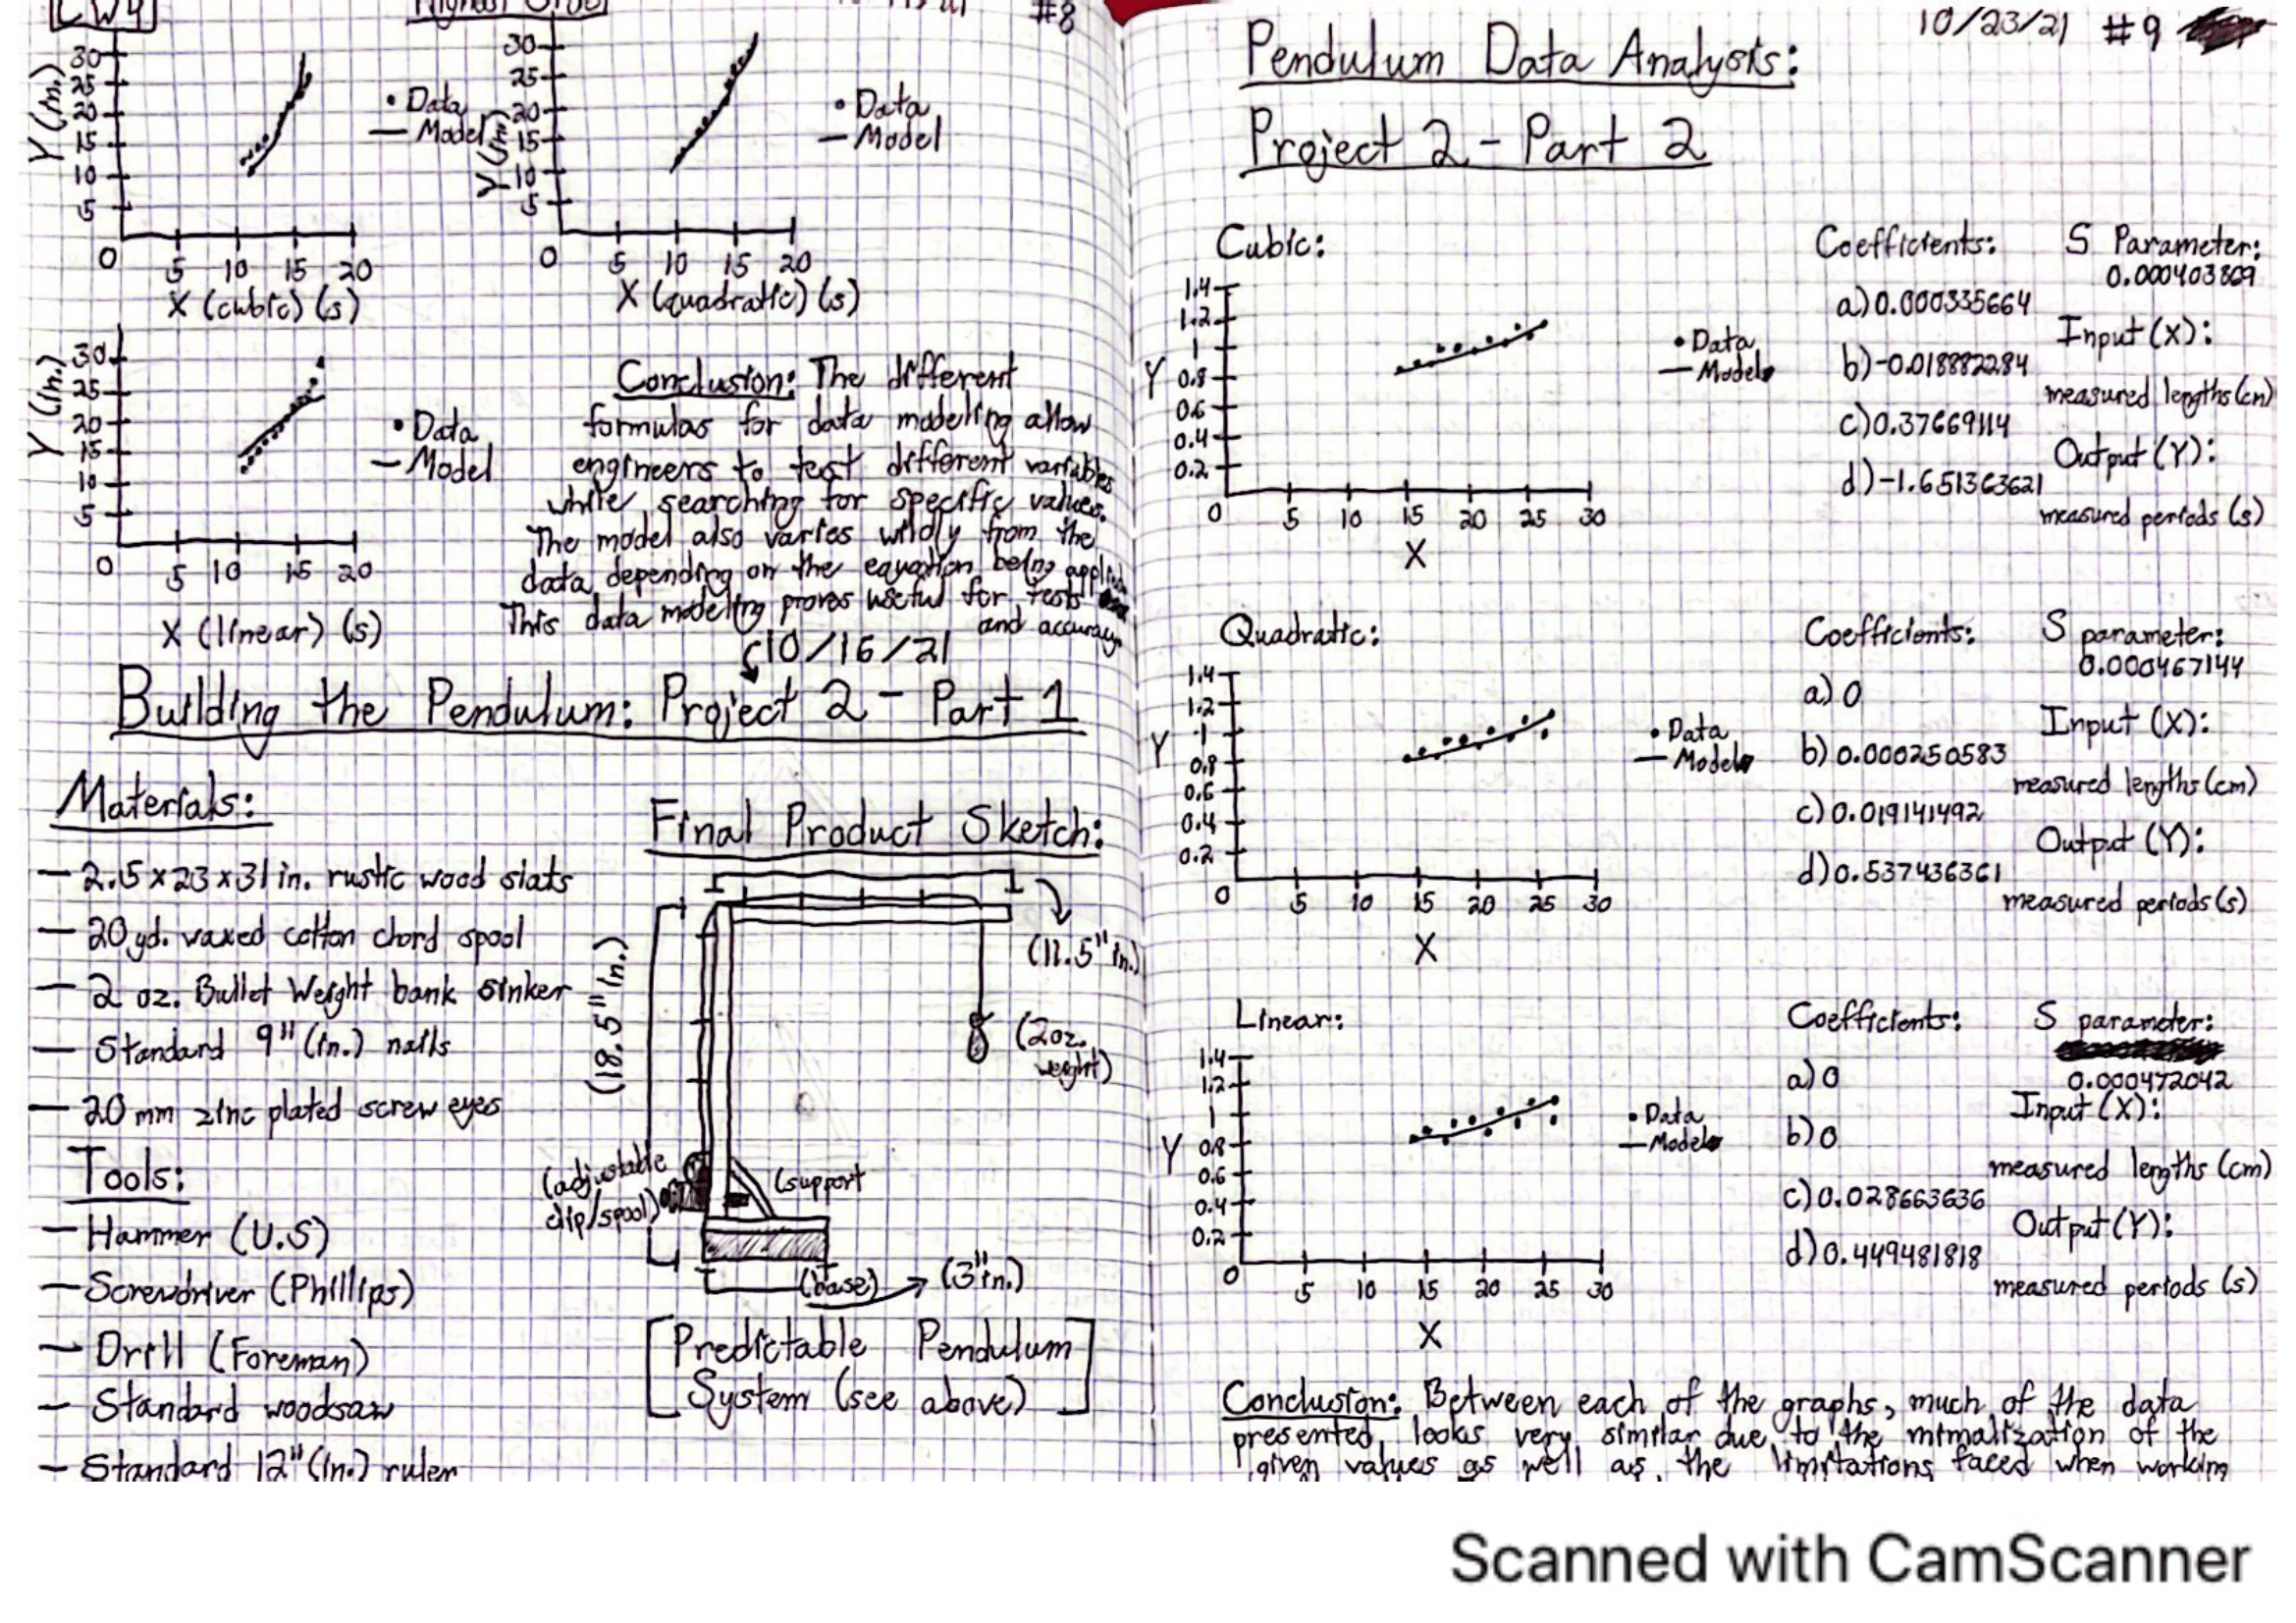 CW4
#8
30
25
20
15
10
5
Y (in.)
0
5 10 15 20
X (cubic) (s)
• Data
— Model
30
25
20
15
10
5
Y (in.)
0
5 10 15 20
X (quadratic) (s)
• Data
— Model
30
25
20
15
10
5
Y (in.)
0
5 10 15 20
X (linear) (s)
• Data
— Model
Conclusion: The different
formulas for data modeling allow
engineers to test different variables
while searching for specific values.
The model also varies wildly from the
data depending on the equation being applied
This data modeling proves useful for tests
and accuracy.
10/16/21
Building the Pendulum: Project 2 - Part 1
Materials:
— 2.15 x 23 x 31 in. rustic wood slats
— 20 yd. waxed cotton chord spool
— 2 oz. Bullet Weight bank sinker
— Standard 9" (in.) nails
— 20 mm zinc plated screw eyes
Tools:
— Hammer (U.S)
— Screwdriver (Phillips)
— Drill (Foreman)
— Standard woodsaw
— Standard 12" (in.) ruler
Final Product Sketch:
(11.5" in.)
(18.5" in.)
(2oz.
weight)
(adjustable
clip/spool)
(support
(base)
(3" in.)
[Predictable Pendulum
System (see above)]
10/23/21 #9
Pendulum Data Analysis:
Project 2 - Part 2
Cubic:
1.4
1.2
1
0.8
0.6
0.4
0.2
Y
0
5 10 15 20 25 30
X
• Data
— Model
Coefficients:
a) 0.000335664
b) -0.018882284
c) 0.37669114
d) -1.651363621
S Parameter:
0.000403869
Input (X):
measured lengths (cm)
Output (Y):
measured periods (s)
Quadratic:
1.4
1.2
1
0.8
0.6
0.4
0.2
Y
0
5 10 15 20 25 30
X
• Data
— Model
Coefficients:
a) 0
b) 0.000250583
c) 0.019141492
d) 0.537436361
S parameter:
0.000467144
Input (X):
measured lengths (cm)
Output (Y):
measured periods (s)
Linear:
1.4
1.2
1
0.8
0.6
0.4
0.2
Y
0
5 10 15 20 25 30
X
• Data
— Model
Coefficients:
a) 0
b) 0
c) 0.028663636
d) 0.449481818
S parameter:
0.000472042
Input (X):
measured lengths (cm)
Output (Y):
measured periods (s)
Conclusion: Between each of the graphs, much of the data
presented looks very similar due to the mimalization of the
given values as well as the limitations faced when working
Scanned with CamScanner